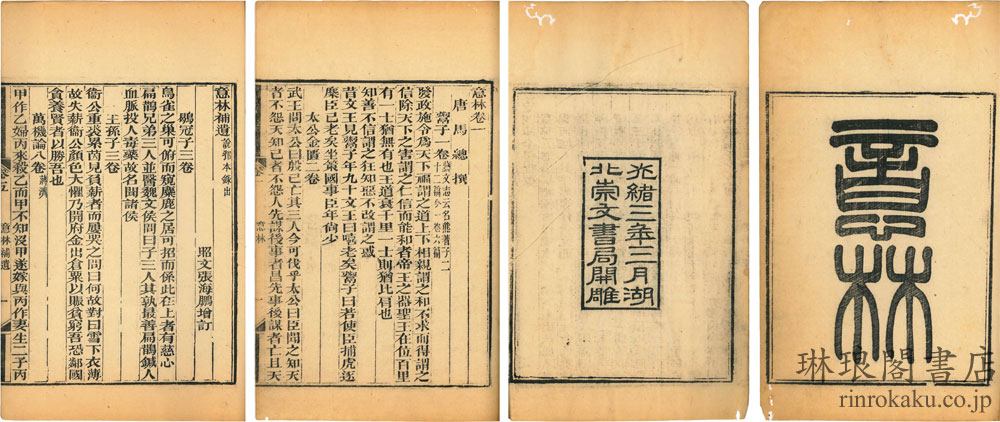 意林
光緒三年三月湖
北崇文書局開雕
意林卷一
唐 馬 總 撰
鬻子一卷 藝文志云名熊著子二十二篇今一卷六篇
發政施令為天下福謂之道上下相親謂之和不求而得謂之
信除天下之害謂之仁信而能和者帝王之器聖王在位百里
有一士猶無有也王道衰千里一士則猶比肩也
知善不信謂之狂知惡不改謂之惑
昔文王見鬻子年九十文王曰嘻老矣鬻子曰若使臣捕虎逐
麋臣已老矣坐策國事臣年尚少
太公金匱二卷
武王問太公曰殷已亡其三人今可伐乎太公曰臣聞之知天
者不怨天知己者不怨人先謀後事者昌先事後謀者亡且天
意林
意林補遺 說郛本錄出
昭文張海鵬增訂
鶡冠子三卷
鳥雀之巢可俯而窺麋鹿之居可招而係此在上者有慈心
扁鵲兄弟三人並醫魏文侯問曰子三人其孰最善扁鵲鍼人
血脈投人毒藥故名聞諸侯
王孫子三卷
衞公重裘累茵見負薪者而屢哭之問曰何故對曰雪下衣薄
故失薪衞公顏色大懼乃開府金出倉粟以賑貧窮吾恐鄰國
貪養賢者以勝吾也
萬機論八卷 蔣濟
甲作乙婦丙來殺乙而甲不知沒甲遂嫁與丙作妻生二子丙
意林補遺 一
琳琅閣書店
rinrokaku.co.jp